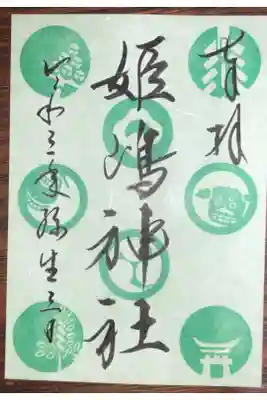 奉拝
姫嶋神社
令和三年弥生三日